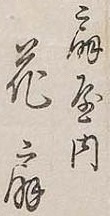 扇屋内
花扇